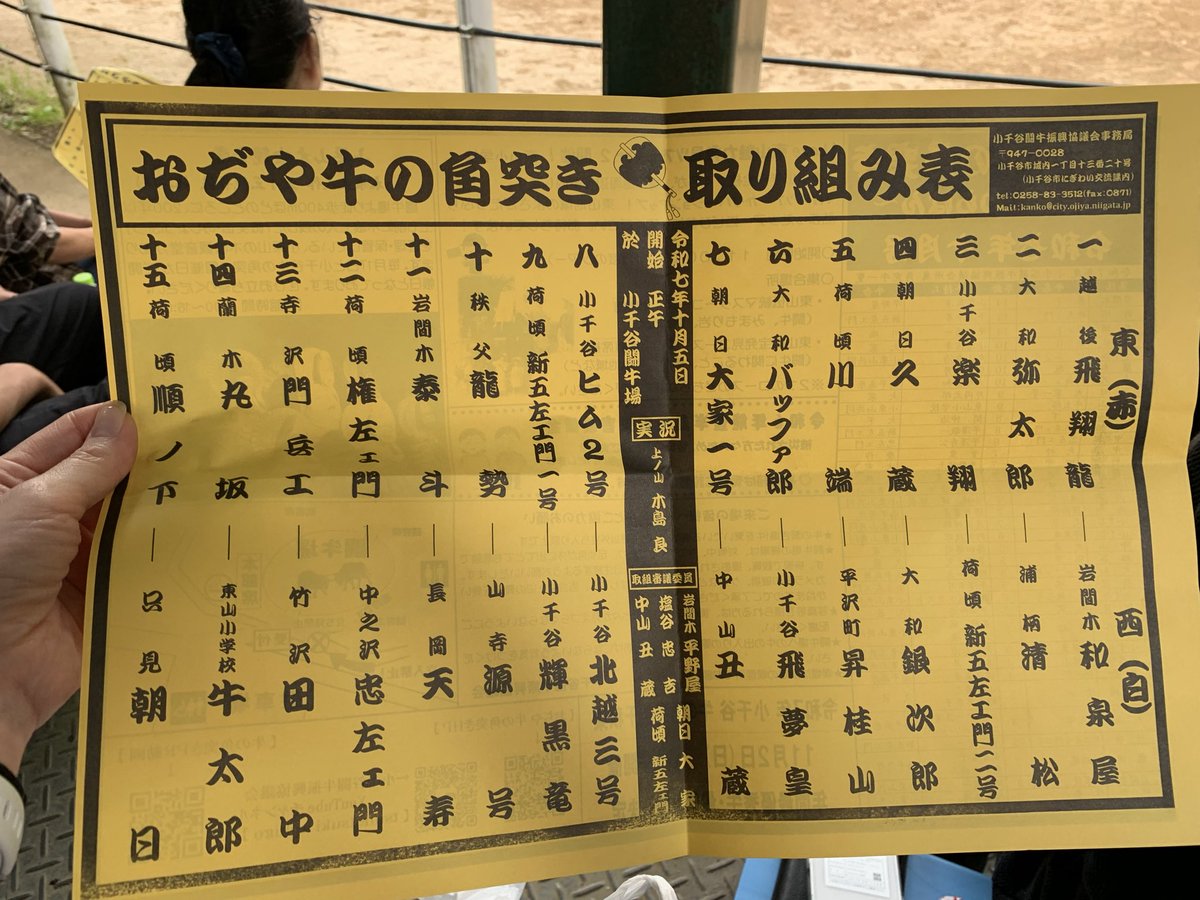 おぢや牛の角突き 取り組み表
小千谷闘牛振興協議会事務局
〒947-0028
小千谷市城内一丁目十三番二十号
(小千谷市にぎわい交流課内)
tel:0258-83-3512(fax:0871)
Mail:kanko@city.ojiya.niigata.jp
東(赤)
西(白)
一 越後 飛翔龍 ― 岩間木 和泉屋
二 大和 弥太郎 ― 浦柄 清松
三 小千谷 楽翔 ― 荷頃 新五左エ門二号
四 朝日 久蔵 ― 大和 銀次郎
五 荷頃 川端 ― 平沢町 昇桂山
六 大和 バッファ郎 ― 小千谷 飛夢皇
七 朝日 大家一号 ― 中山 丑蔵
令和七年十月五日
開始 正午
於 小千谷闘牛場
実況
上ノ山 木島 良
取組審議委員
岩間木 平野屋 朝日 大家
塩谷 忠吉 荷頃 新五左エ門
中山 丑蔵
八 小千谷 ヒム2号 ― 小千谷 北越三号
九 荷頃 新五左エ門一号 ― 小千谷 輝黒竜
十 秩父 龍勢 ― 山寺 源号
十一 岩間木 泰斗 ― 長岡 天寿
十二 荷頃 権左エ門 ― 中之沢 忠左エ門
十三 寺沢 門兵エ ― 竹沢 田中
十四 蘭木 丸坂 ― 東山小学校 牛太郎
十五 荷頃 順ノ下 ― 只見 朝日